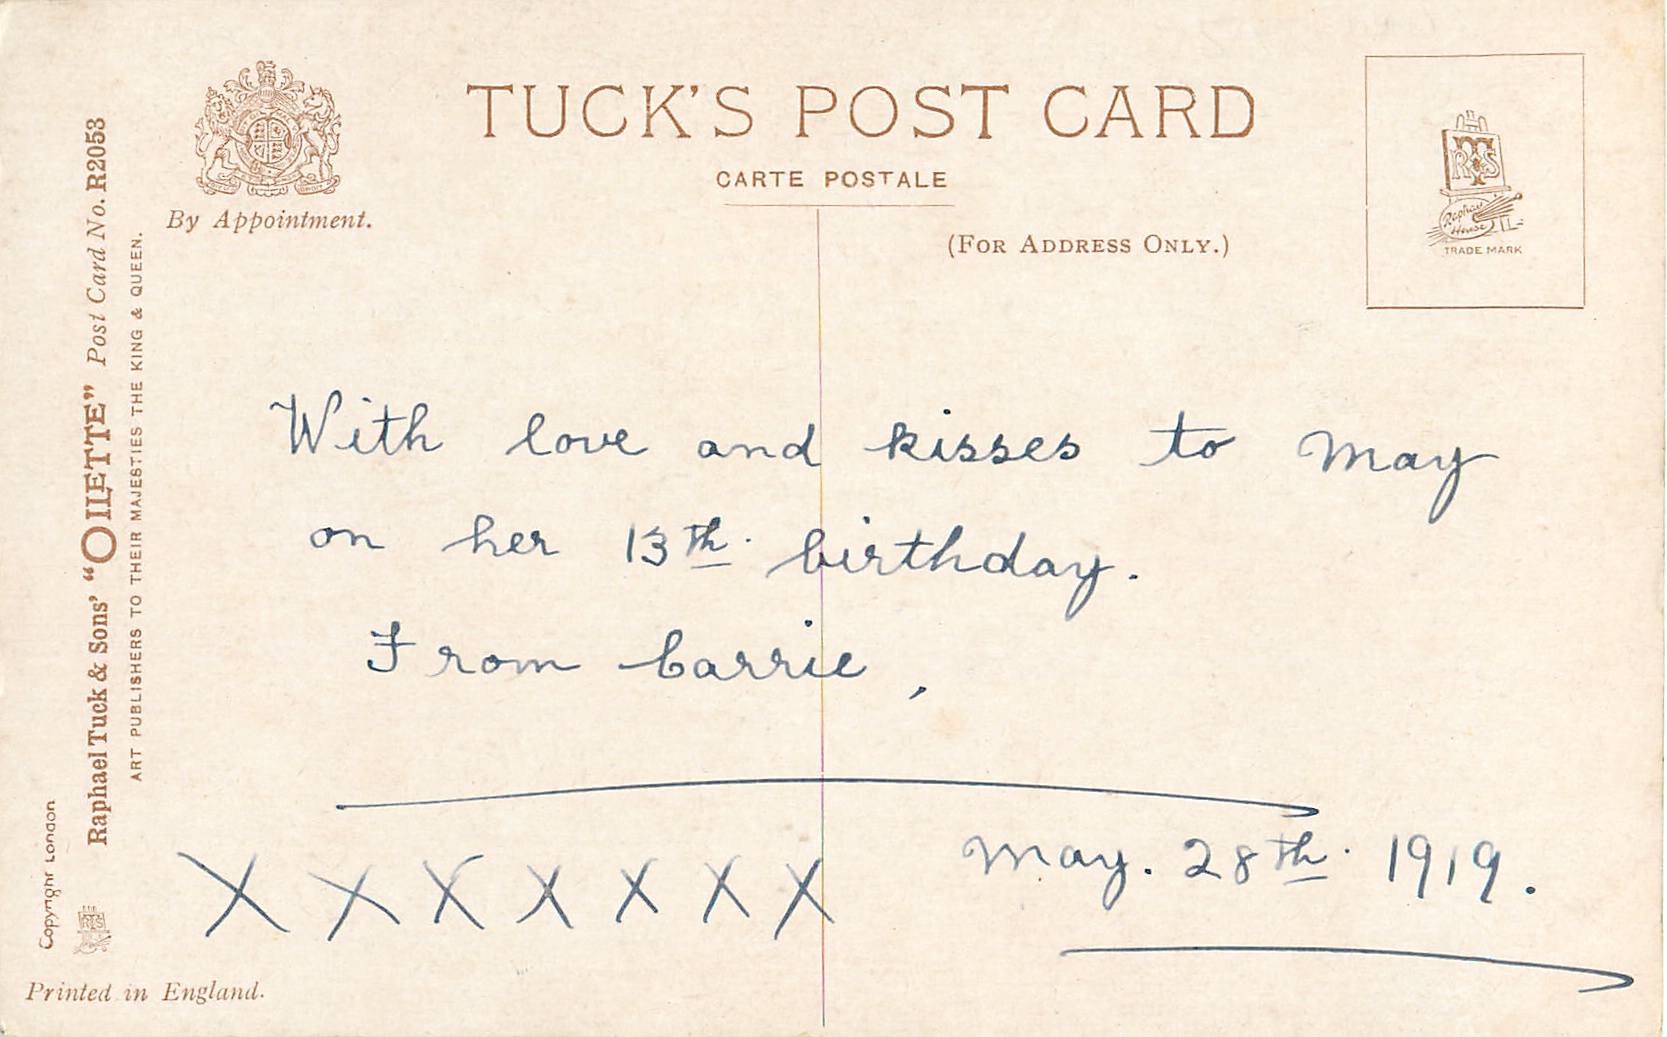 TUCK'S POST CARD
CARTE POSTALE
By Appointment.
(FOR ADDRESS ONLY.)
RTS
Raphael
House
TRADE MARK
Raphael Tuck & Sons' "OILETTE" Post Card No. R2053
ART PUBLISHERS TO THEIR MAJESTIES THE KING & QUEEN.
Copyright London
RTS
With love and kisses to May
on her 13th. birthday.
From Carrie,
X X X X X X X
May. 28th. 1919.
Printed in England.